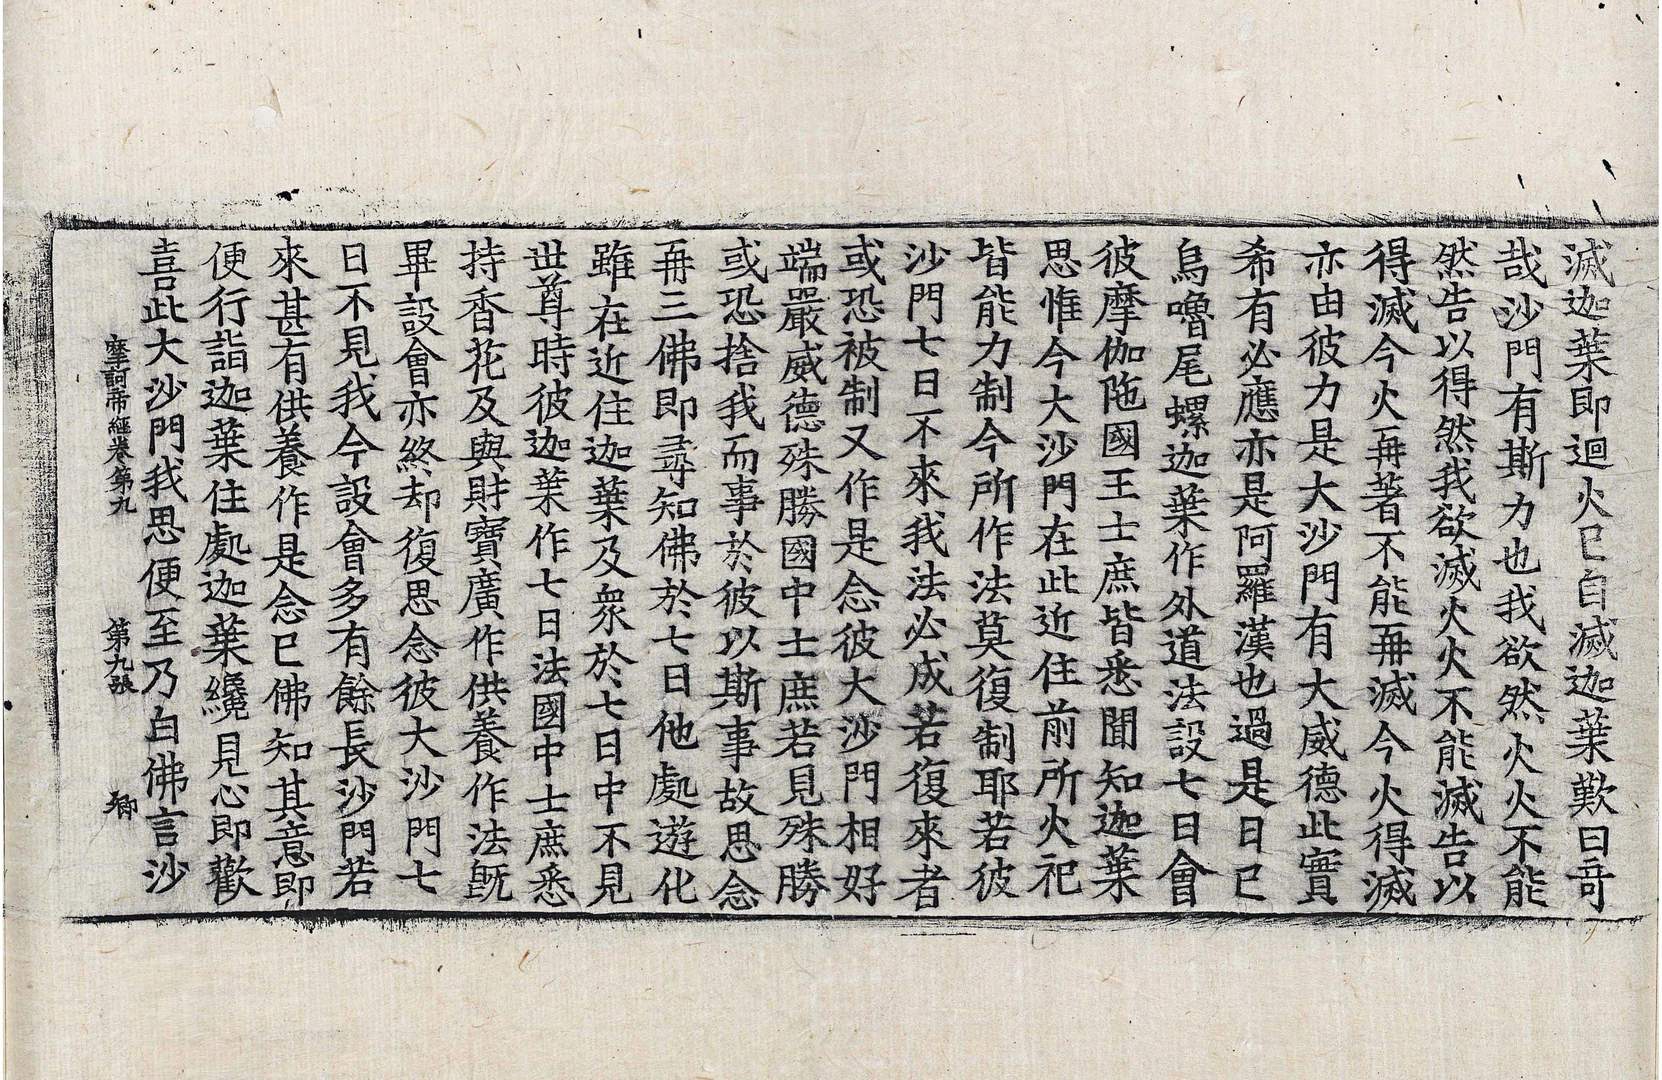 滅迦葉即迴火已自滅迦葉歎曰奇
哉沙門有斯力也我欲然火火不能
然告以得然我欲滅火火不能滅告以
得滅今火再著不能再滅今火得滅
亦由彼力是大沙門有大威德此實
希有必應亦是阿羅漢也過是日已
烏嚕尾螺迦葉作外道法設七日會
彼摩伽陁國王士庶皆悉聞知迦葉
思惟今大沙門在此近住前所火祀
皆能力制今所作法莫復制耶若彼
沙門七日不來我法必成若復來者
或恐被制又作是念彼大沙門相好
端嚴威德殊勝國中士庶若見殊勝
或恐捨我而事於彼以斯事故思念
再三佛即尋知佛於七日他處遊化
雖在近住迦葉及衆於七日中不見
世尊時彼迦葉作七日法國中士庶悉
持香花及與財寶廣作供養作法旣
畢設會亦終却復思念彼大沙門七
日不見我今設會多有餘長沙門若
來甚有供養作是念已佛知其意即
便行詣迦葉住處迦葉纔見心即歡
喜此大沙門我思便至乃白佛言沙
摩訶帝經卷第九 第九張 卿